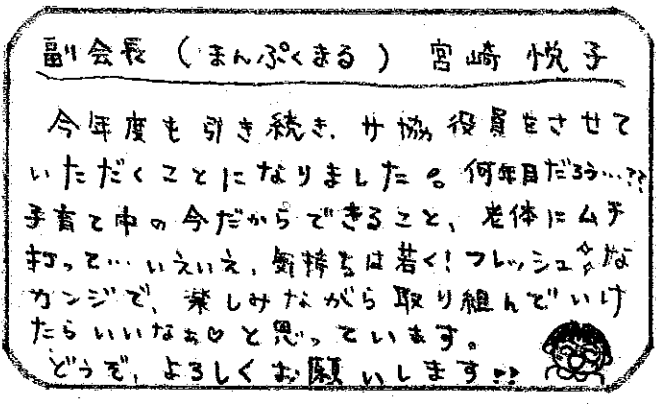 副会長（まんぷくまる）宮崎 悦子
今年度も引き続き、サ協役員をさせて
いただくことになりました。何年目だろう…??
子育て中の今だからできること、老体にムチ
打って…いえいえ、気持ちは若く！フレッシュ☆な
カンジで、楽しみながら取り組んでいけ
たらいいなぁ♡と思っています。
どうぞ、よろしくお願いします!!